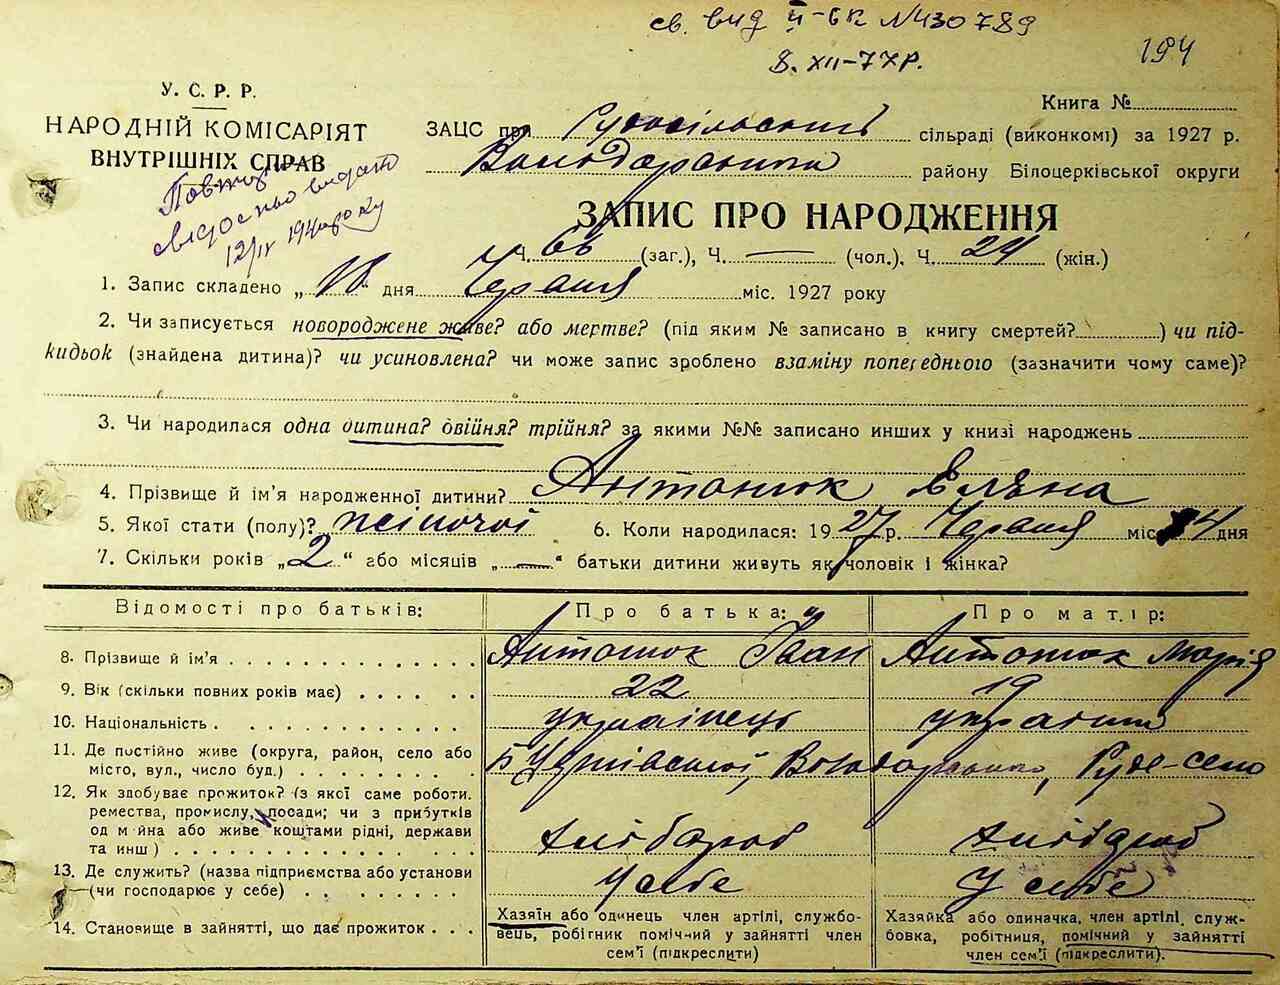 св. вид II-БК №430789
8. XII-77р.
194
У. С. Р. Р.
НАРОДНІЙ КОМІСАРІЯТ
ВНУТРІШНІХ СПРАВ
Книга №
ЗАЦС при Рудосільській сільраді (виконкомі) за 1927 р.
Володарського району Білоцерківської округи
Повтор
свідоство видано
ЗАПИС ПРО НАРОДЖЕННЯ
Ч. 66 (заг.), Ч. — (чол.), Ч. 24 (жін.)
1. Запис складено „ “ дня Червня міс. 1927 року
2. Чи записується новороджене живе? або мертве? (під яким № записано в книгу смертей? ) чи під-
кидьок (знайдена дитина)? чи усиновлена? чи може запис зроблено взаміну попереднього (зазначити чому саме)?
3. Чи народилася одна дитина? двійня? трійня? за якими №№ записано инших у книзі народжень
4. Прізвище й ім'я народженної дитини? Антонюк Єлєна
5. Якої стати (полу)? жіночої 6. Коли народилася: 1927 р. Червня міс. 4 дня
7. Скільки років „2“ або місяців „—“ батьки дитини живуть як чоловік і жінка?
Відомості про батьків: Про батька: Про матір:
8. Прізвище й ім'я Антонюк Іван Антонюк Марія
9. Вік (скільки повних років має) 22 19
10. Національність українець українка
11. Де постійно живе (округа, район, село або
місто, вул., число буд.) Б Церківської, Володарського, Руде-село
12. Як здобуває прожиток? (з якої саме роботи.
ремества, промислу, посади; чи з прибутків
од майна або живе коштами рідні, держави
та инш) хлібороб хлібороб
13. Де служить? (назва підприємства або установи
(чи господарює у себе) У себе У себе
14. Становище в зайнятті, що дає прожиток
Хазяїн або одинець член артілі, службо-
вець, робітник помічний у зайнятті член
сем'ї (підкреслити)
Хазяйка або одиначка, член артілі, служ-
бовка, робітниця, помічний у зайнятті
член сем'ї (підкреслити).